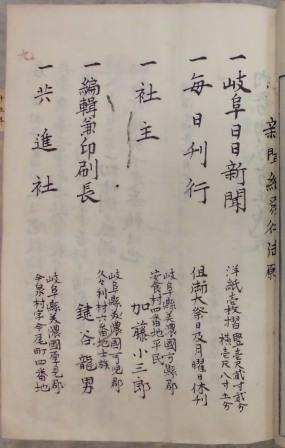 一岐阜日日新聞
洋紙壱枚摺 竪壱尺弐寸弐分
横壱尺八寸五分
一毎日刊行
但祭大祭日及月曜日休刊
一社主
岐阜縣美濃國可児郡
村四番地平民
加藤小三郎
一編輯兼印刷長
岐阜縣美濃國可児郡
久々利村六番地士族
鑓谷龍男
一共進社
岐阜縣美濃國厚見郡
今泉村字今尾町四番地